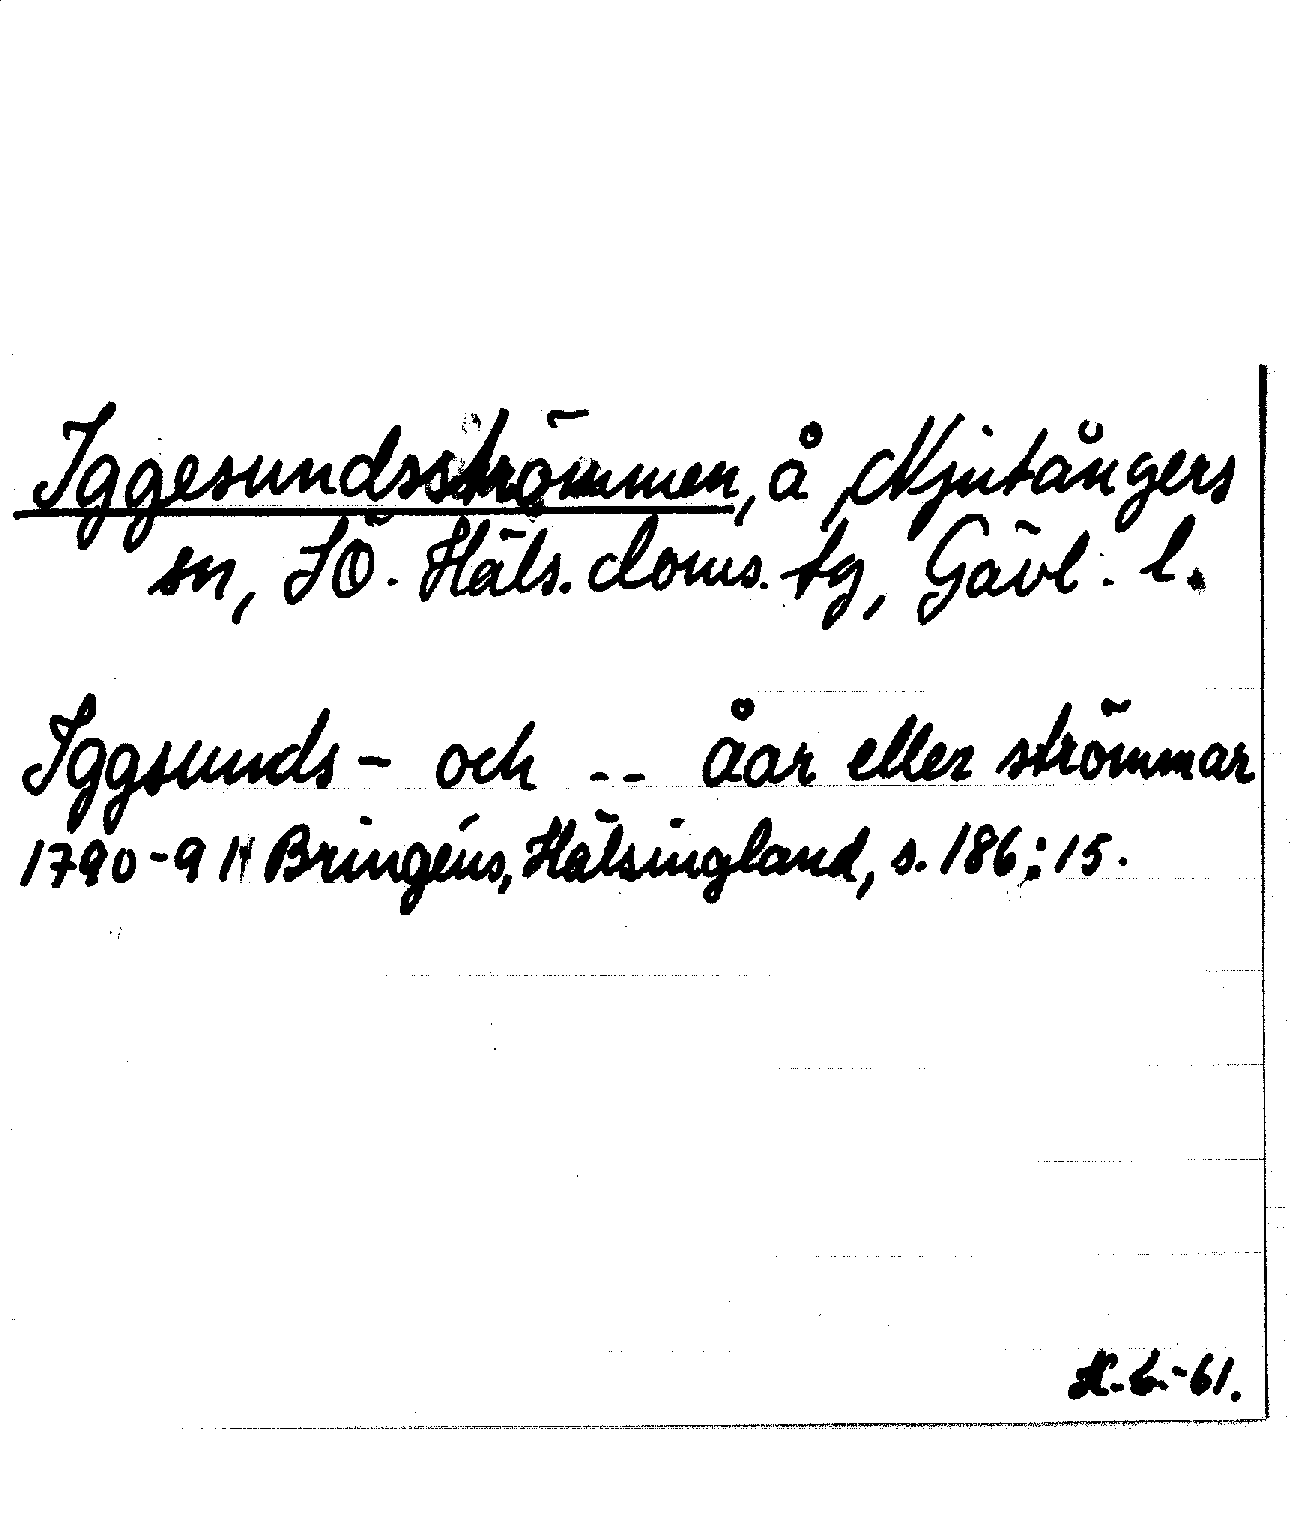 Iggesundsströmmen, å, Njutångers
sn, SÖ. Häls. doms. tg, Gävl. l.
Iggsunds- och -- åar eller strömmar
1790-91 Bringéus, Hälsingland, s. 186:15.
-61.